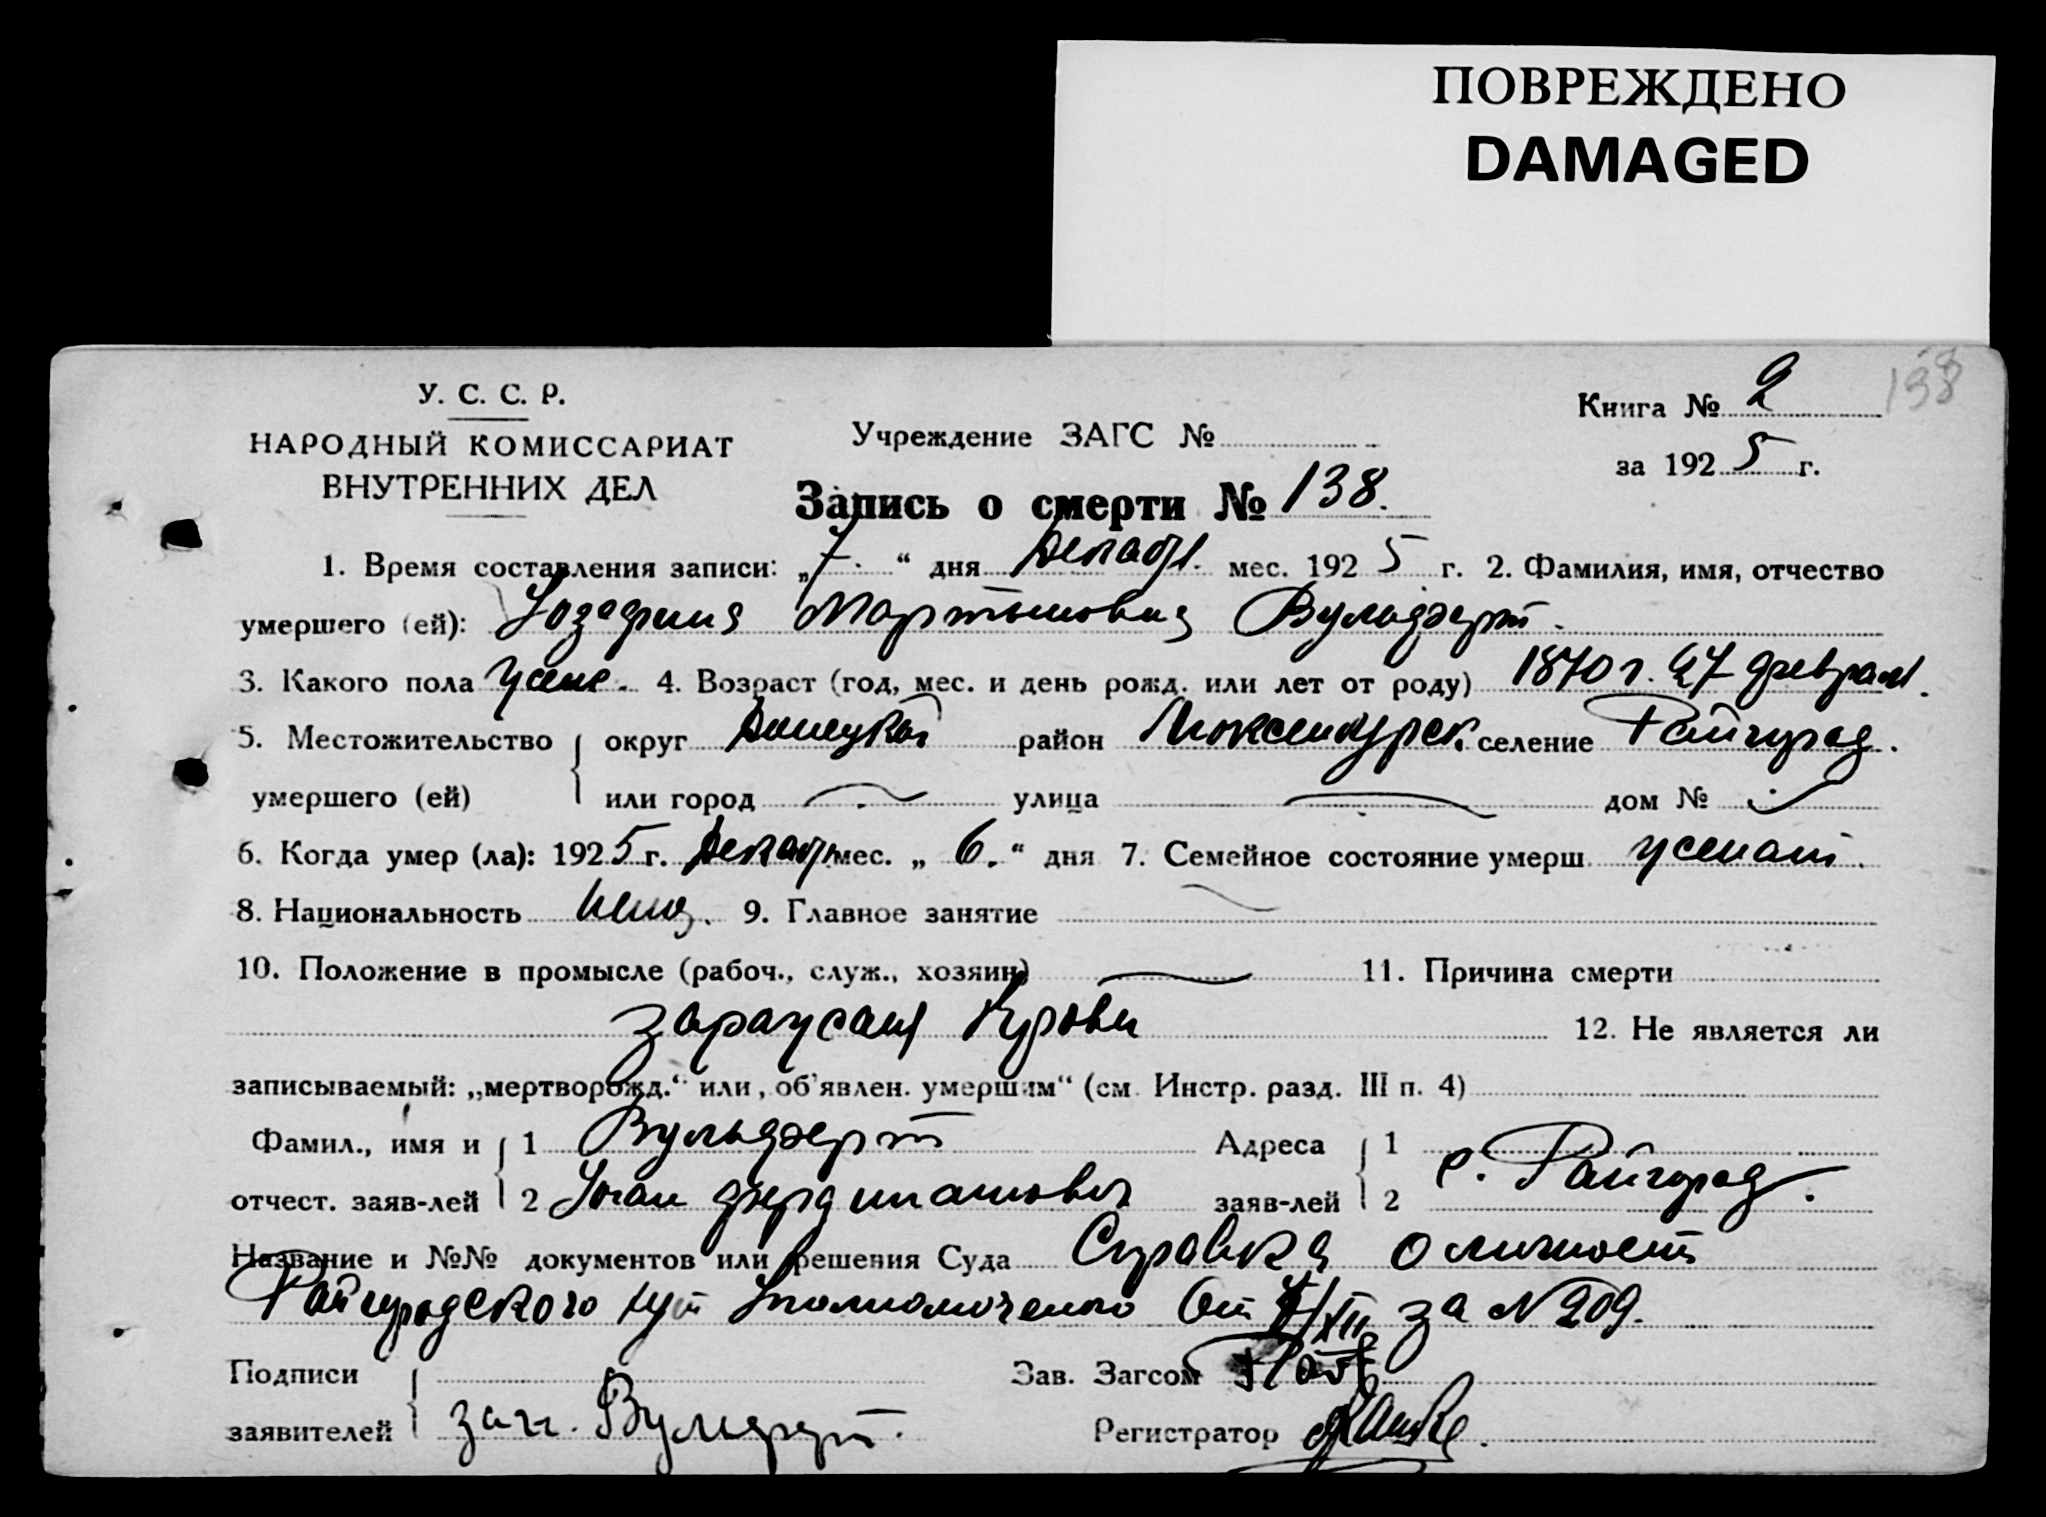 ПОВРЕЖДЕНО
DAMAGED
138
У. С. С. Р.
НАРОДНЫЙ КОМИССАРИАТ
ВНУТРЕННИХ ДЕЛ
Учреждение ЗАГС №
Книга № 2
за 1925 г.
Запись о смерти № 138.
1. Время составления записи: „7.“ дня Декабр. мес. 1925 г. 2. Фамилия, имя, отчество
умершего (ей): Юзефина Мартыновна Вульдэрт.
3. Какого пола женс. 4. Возраст (год, мес. и день рожд. или лет от роду) 1870 г. 27 феврал.
5. Местожительство округ Донецкой район Люксенбурск. селение Райгород.
умершего (ей) или город улица дом №
6. Когда умер (ла): 1925 г. Декабр мес. „ 6. “ дня 7. Семейное состояние умерш женат.
8. Национальность немц. 9. Главное занятие
10. Положение в промысле (рабоч., служ., хозяин) 11. Причина смерти
заражения крови 12. Не является ли
записываемый: „мертворожд.“ или, об'явлен. умершим“ (см. Инстр. разд. III п. 4)
Фамил., имя и 1 Вульдэрт Адреса 1
отчест. заяв-лей 2 Иоган Фердинантович заяв-лей 2 с. Райгород.
Название и №№ документов или решения Суда Справка о личност
Райгородского Уполномоченого От /XII за № 209.
Подписи Зав. Загсом
заявителей Вульдэрт. Регистратор